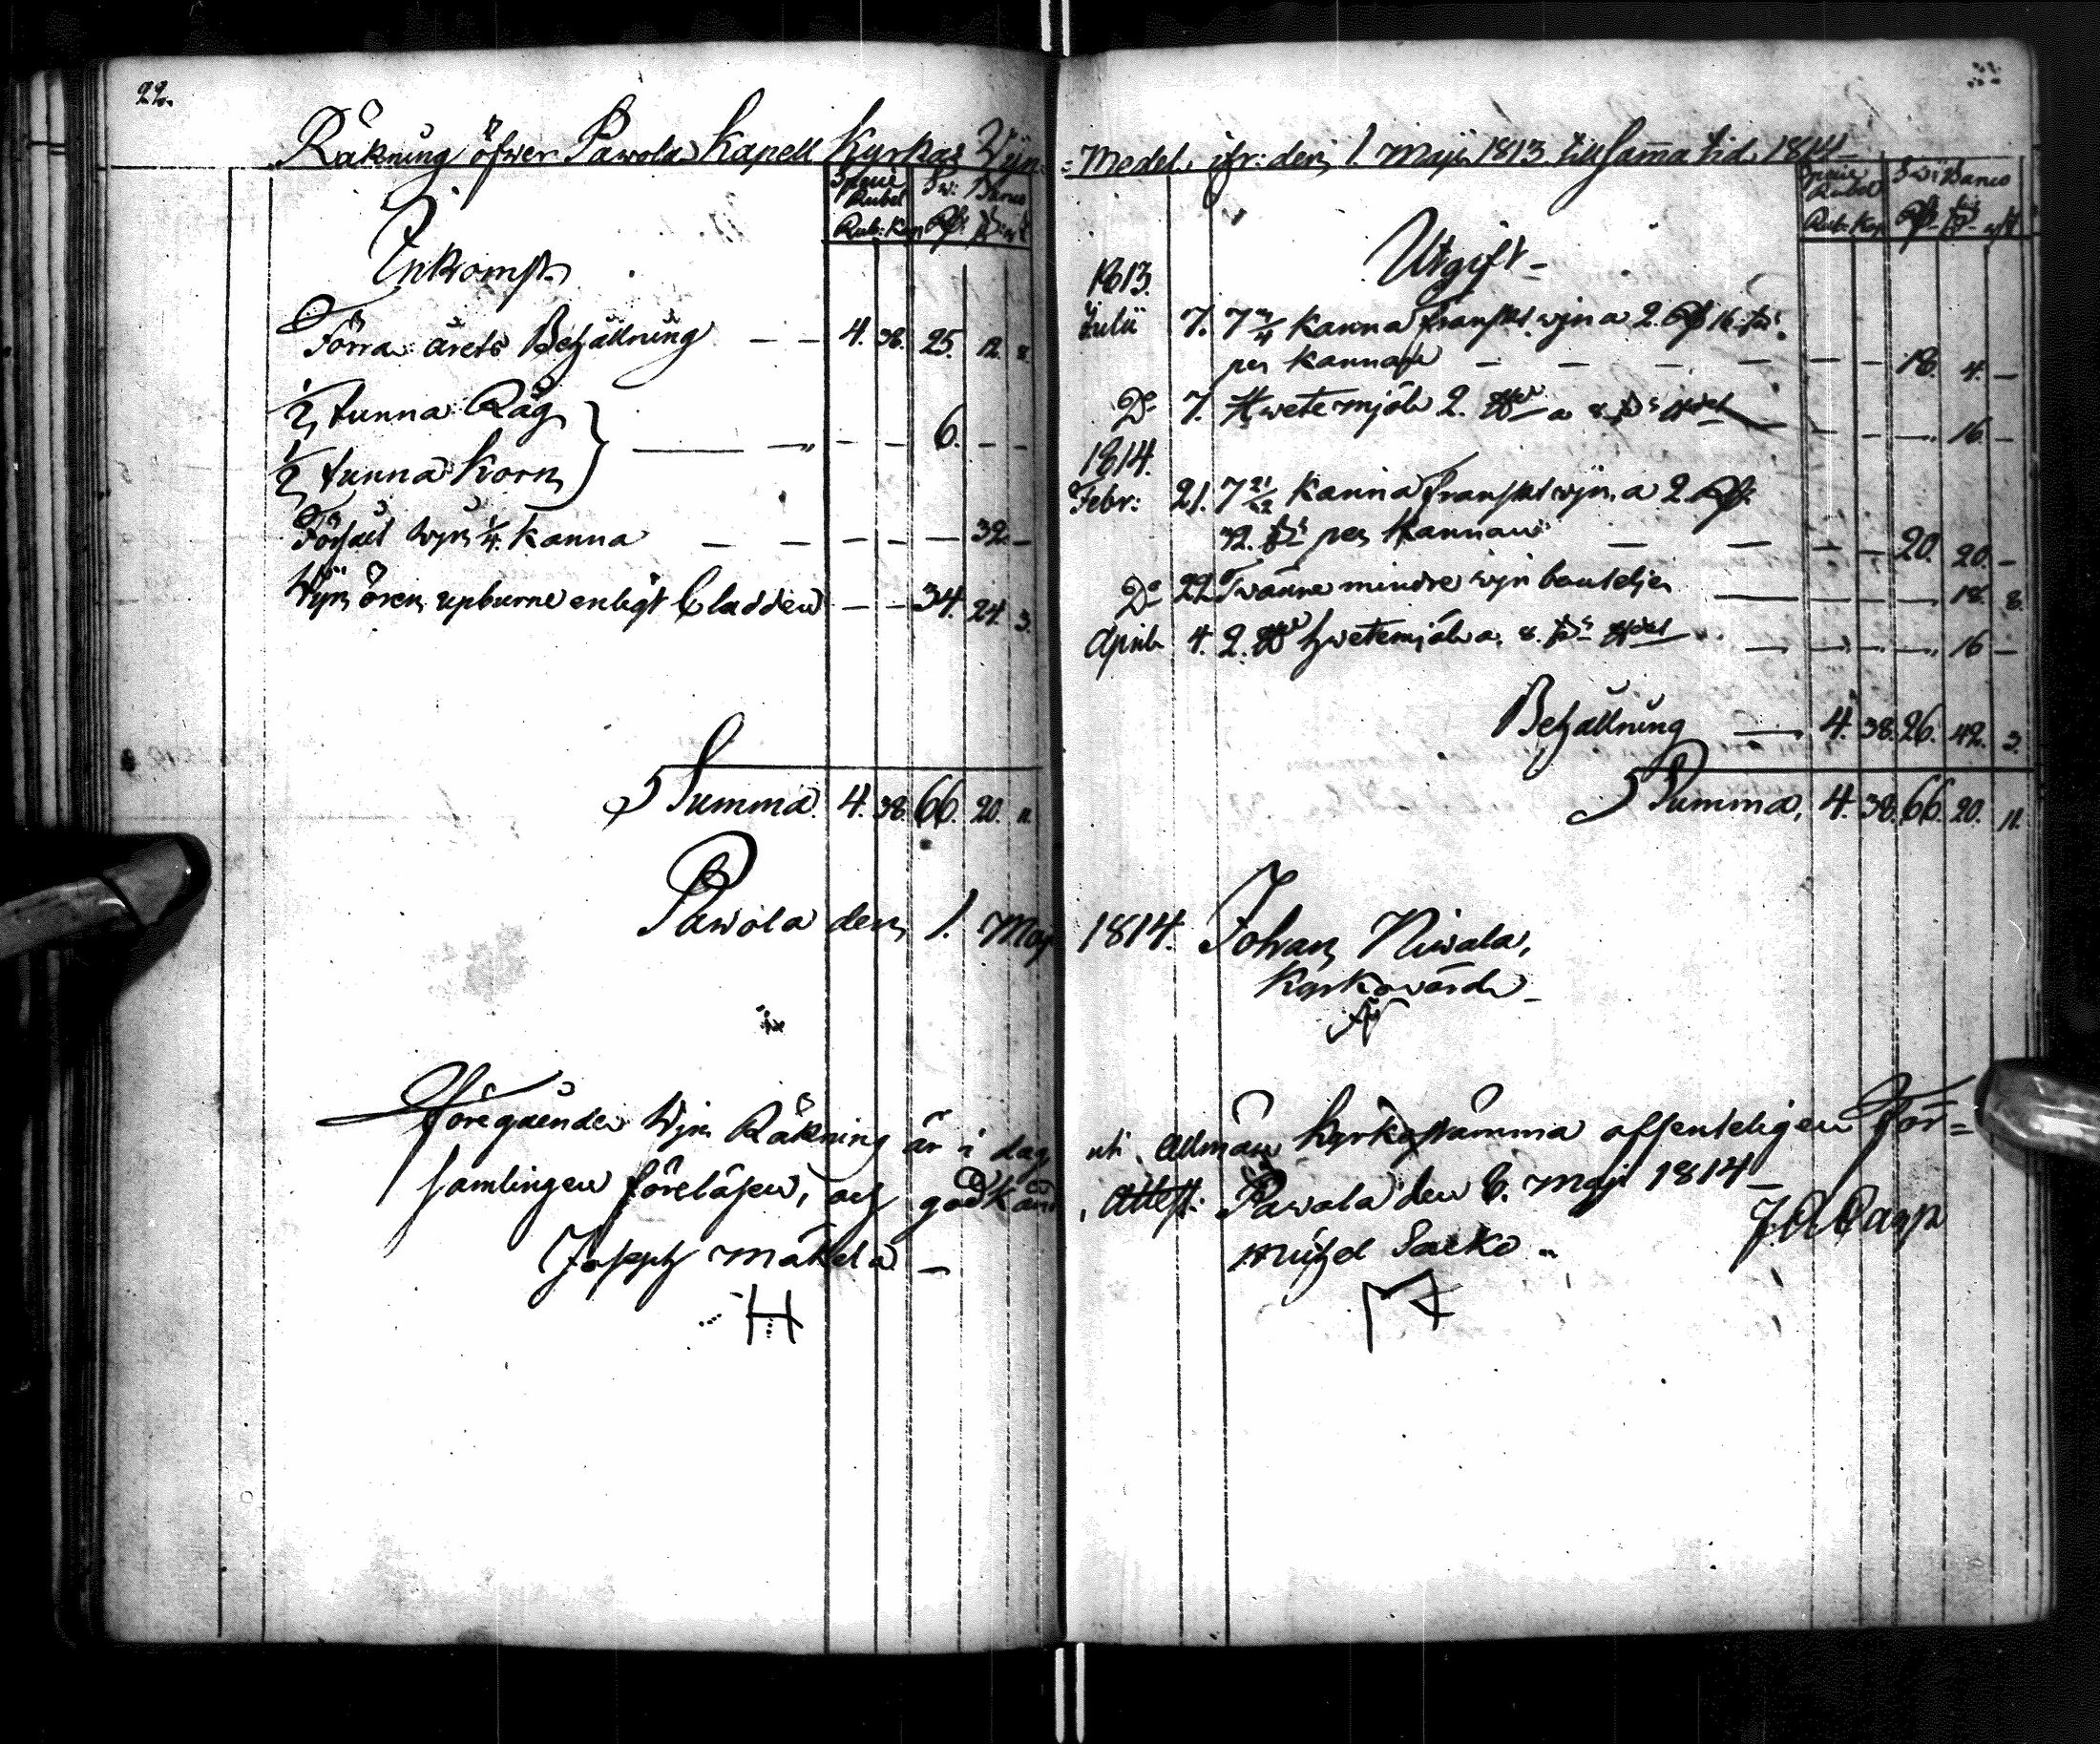 22.
Räkning öfwer Pawola Kapell Kyrkas Wijn=
Specie Rubel Sw: Banco
Rub: Kop Rd: s: rs
Inkomst
Förra årets Behållning — — 4. 38. 25. 12. 8.
1/2 tunna Råg
— — — — 6. — —
1/2 tunna Korn
Försålt wijn 1/4 Kanna — — — — — 32. —
Wijn ören upburne enligt Cladden — — 34. 24. 3.
Summa. 4. 38. 66. 20. 11.
Pawola den 1. Maji
Föregående Wijn Räkning är i dag
samlingen föreläsen, och godkänd
Joseph Mäkelä —
H
=Medel, ifr: den 1 Maji 1813 till sama tid 1814—
Specie Rubel Sw: Banco
Rub: Kop Rd s rst
Utgift —
1813.
Julii 7. 7 3/4 Kanna franskt wijn a 2 Rd 16 s:
per Kannan — — — — — — 18. 4. —
Do 7. Hwetemjöl 2. a 8. s — — — 16. —
1814.
Febr: 21. 7 Kanna franskt wijn a 2 Rd:
32. s per Kannan — — — — 20. 20. —
Do 22 Twänne mindre wijn bouteljer — — — — 18. 8.
April 4. 2. hwetemjöl a 8. s — — — — 16 —
Behållning — 4. 38. 26. 42. 3.
Summa, 4. 38. 66. 20. 11.
1814. Johan Niwala,
Kyrkowärd —
uti Allmän Kyrkostämma offenteligen För=
, Attest: Pawola den 6. Maji 1814 —
Michel Sarko